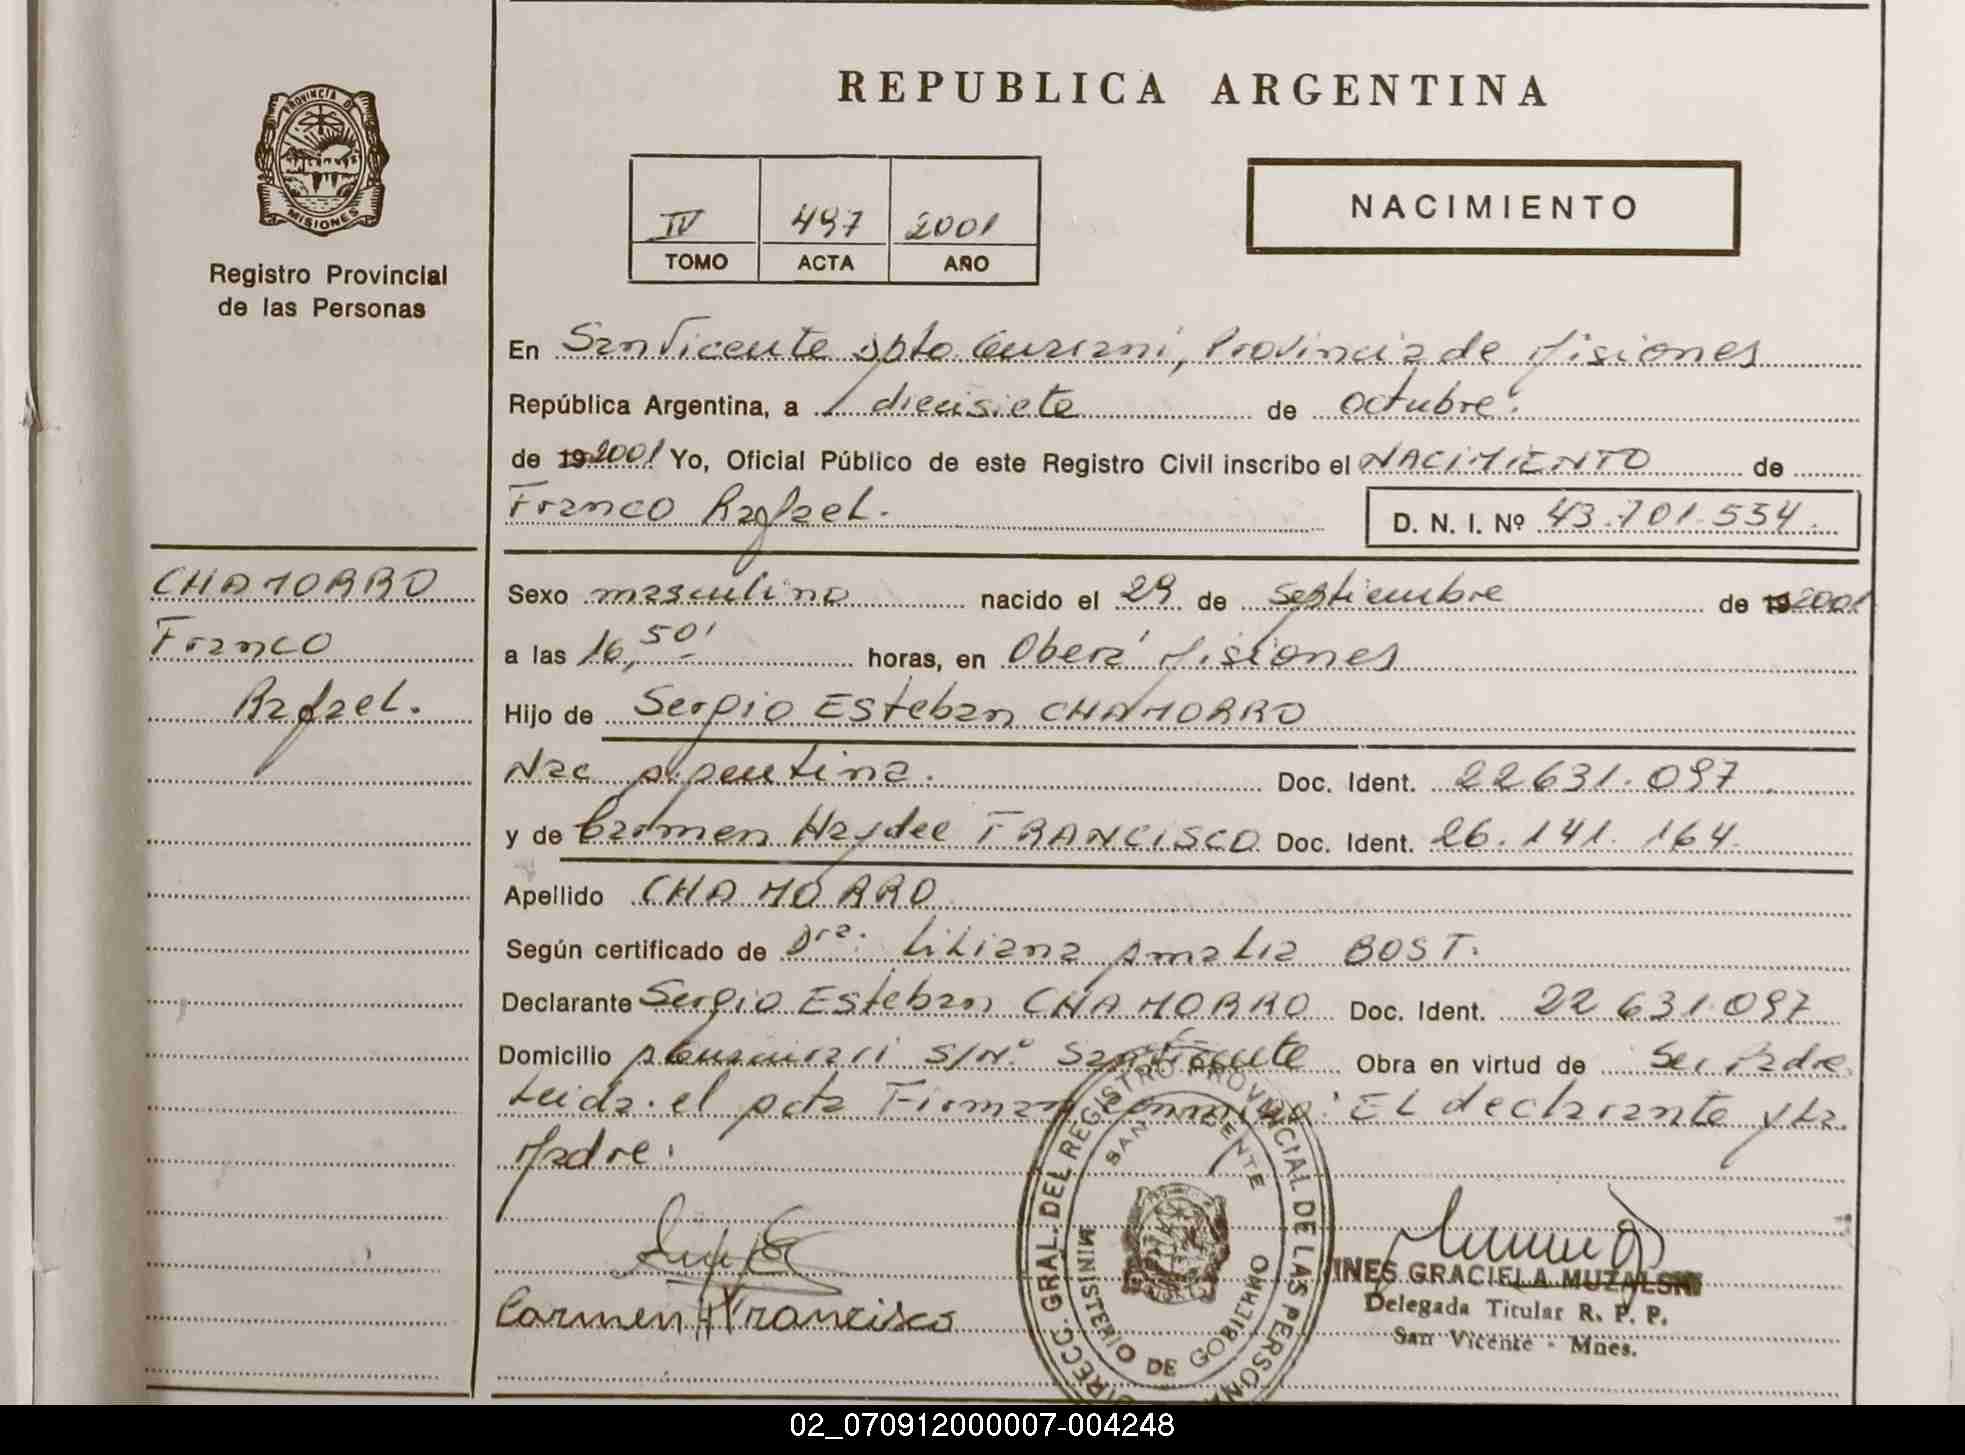 REPUBLICA ARGENTINA
PROVINCIA D
MISIONES
Registro Provincial
de las Personas
IV 497 2001
TOMO ACTA AÑO
NACIMIENTO
En San Vicente Dpto Guarani, Provincia de Misiones
República Argentina, a diecisiete de octubre.
de 19 2001 Yo, Oficial Público de este Registro Civil inscribo el NACIMIENTO de
Franco Rafael.
D. N. I. Nº 43.701.534.
CHAMORRO
Franco
Rafael.
Sexo masculino nacido el 29 de septiembre de 19 2001
a las 16,50' horas, en Oberá Misiones
Hijo de Sergio Esteban CHAMORRO
Nac Argentina. Doc. Ident. 22631.097
y de Carmen Haydee FRANCISCO Doc. Ident. 26.141.164.
Apellido CHAMORRO
Según certificado de Dra. Liliana Amalia BOST.
Declarante Sergio Esteban CHAMORRO Doc. Ident. 22 631.097
Domicilio S/Nº San Vicente Obra en virtud de Ser Padre
Leida el Acta Firman conmigo: EL declarante y La
Madre.
Carmen H Francisco
DIRECC. GRAL. DEL REGISTRO PROVINCIAL DE LAS PERSONAS
SAN VICENTE
MINISTERIO DE GOBIERNO
INES GRACIELA MUZALSKI
Delegada Titular R. P. P.
San Vicente - Mnes.
02_070912000007-004248